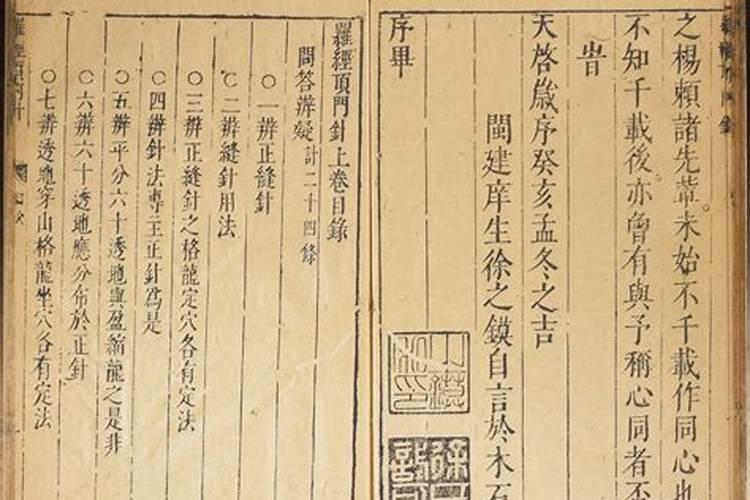 之楊頼諸先輩未始不千載作同心也
不知千載後亦曾有與予稱心同者否
旹
天啓歲序癸亥孟冬之吉
閩建庠生徐之鏌自言於木石
序畢
羅經頂門針上卷目錄
問答辨疑計二十四條
○一辨正縫針
○二辨縫針用法
○三辨正縫針之格龍定穴各有定法
○四辨針法專主正針爲是
○五辨平分六十透地與盈縮龍之是非
○六辨六十透地應分布於正針
○七辨透地穿山格龍坐穴各有定法
羅經頂門針